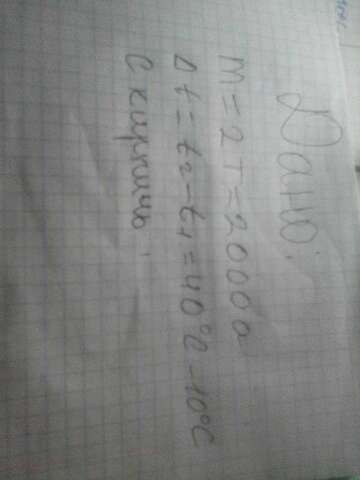 Дано:
m = 2т = 2000
Δt = t₂ - t₁ = 40°C - 10°C
C кирпича